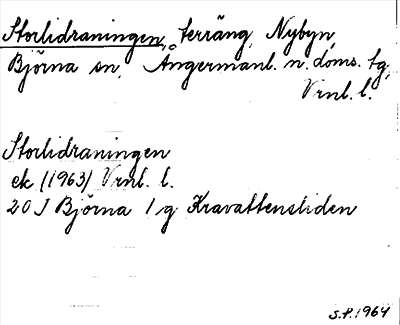 Storlidraningen, terräng, Nybyn,
Björna sn, Ångermanl. n. doms. tg,
Vrnl. l.
Storlidraningen
ek (1963) Vrnl. l.
20 J Björna 1 g Kravattensliden
S.P. 1964